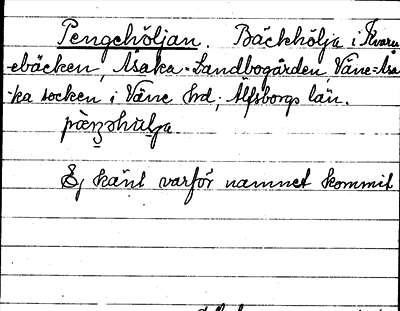 Pengehöljan. Bäckhölja i Kvarn
-ebäcken, Åsaka-Landbogården, Väne=Åsa
-ka socken i Väne hrd; Älfsborgs län.
Ej känt varför namnet kommit